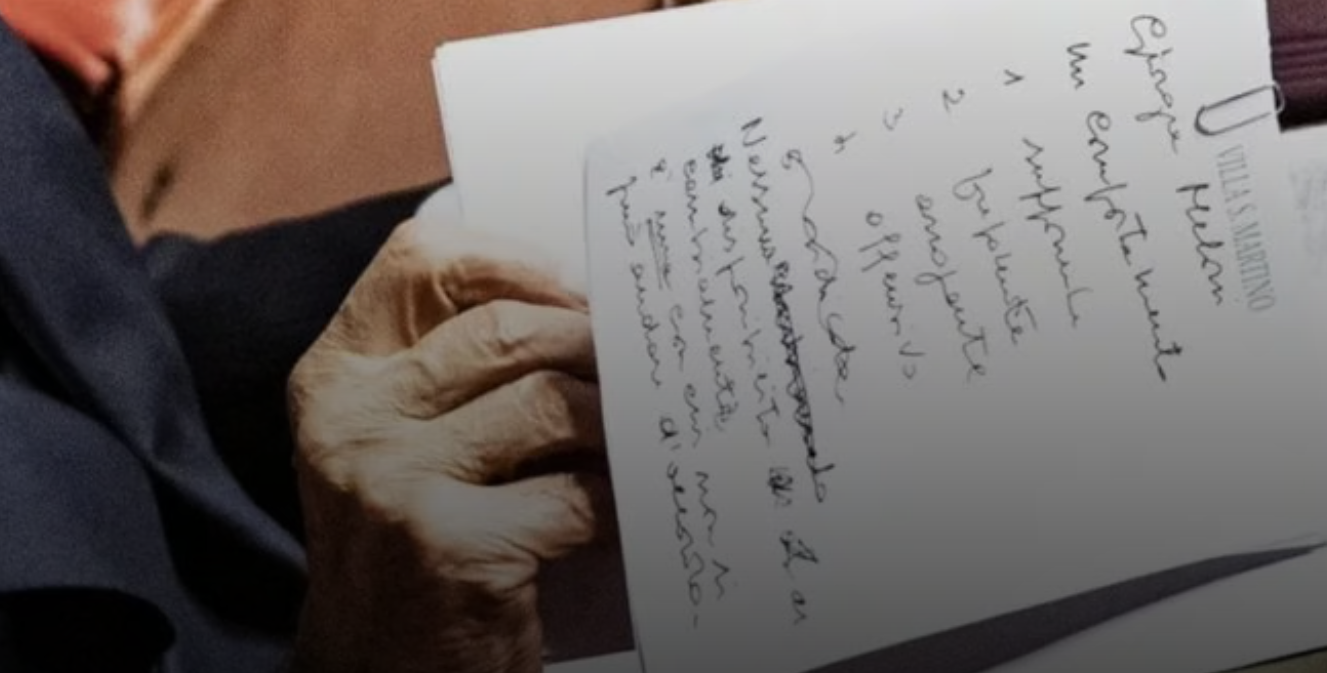 VILLA S. MARTINO
Giorgia Meloni
un comportamento
1 supponente
2 prepotente
3 arrogante
4 offensivo
Nessuna disponibilità ai
cambiamenti
è una con cui non si
può andare d'accordo.